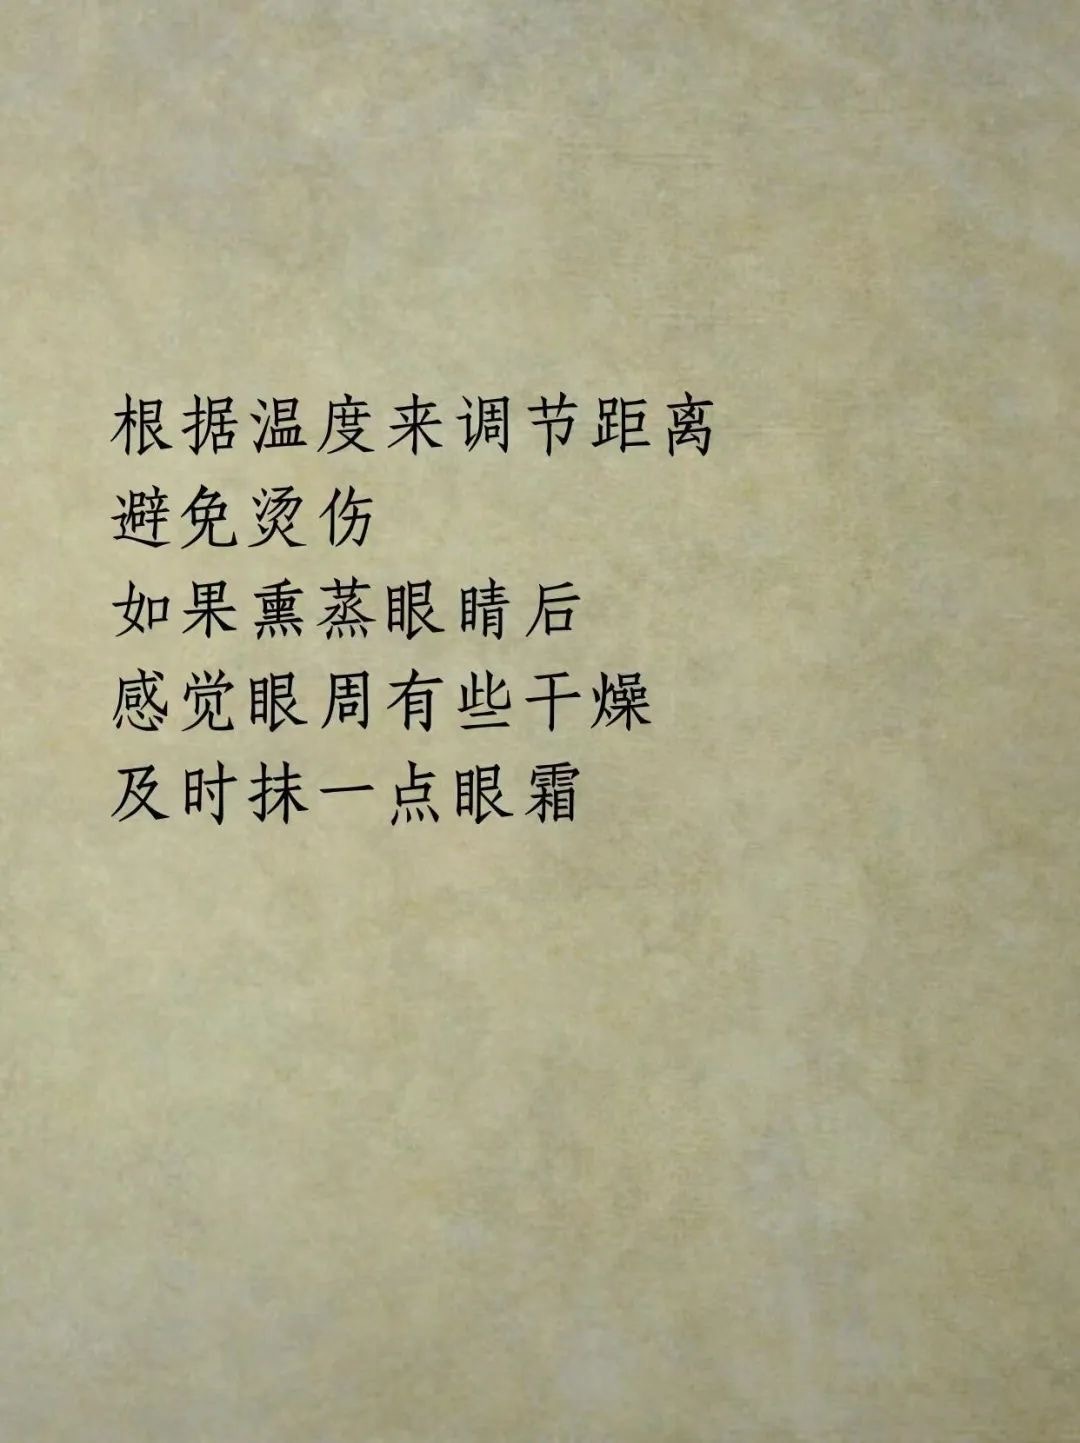 根据温度来调节距离
避免烫伤
如果熏蒸眼睛后
感觉眼周有些干燥
及时抹一点眼霜